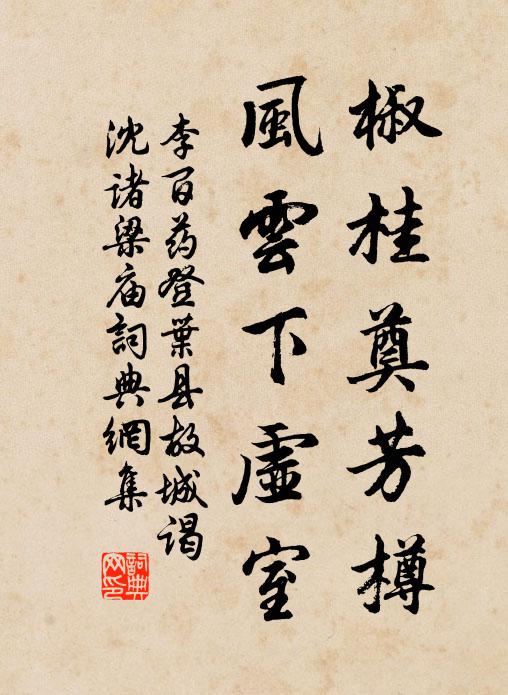 椒桂奠芳樽
風雲下虛室
李百药登葉县故城谒
沈诸梁庙詞典網集
詞典网印